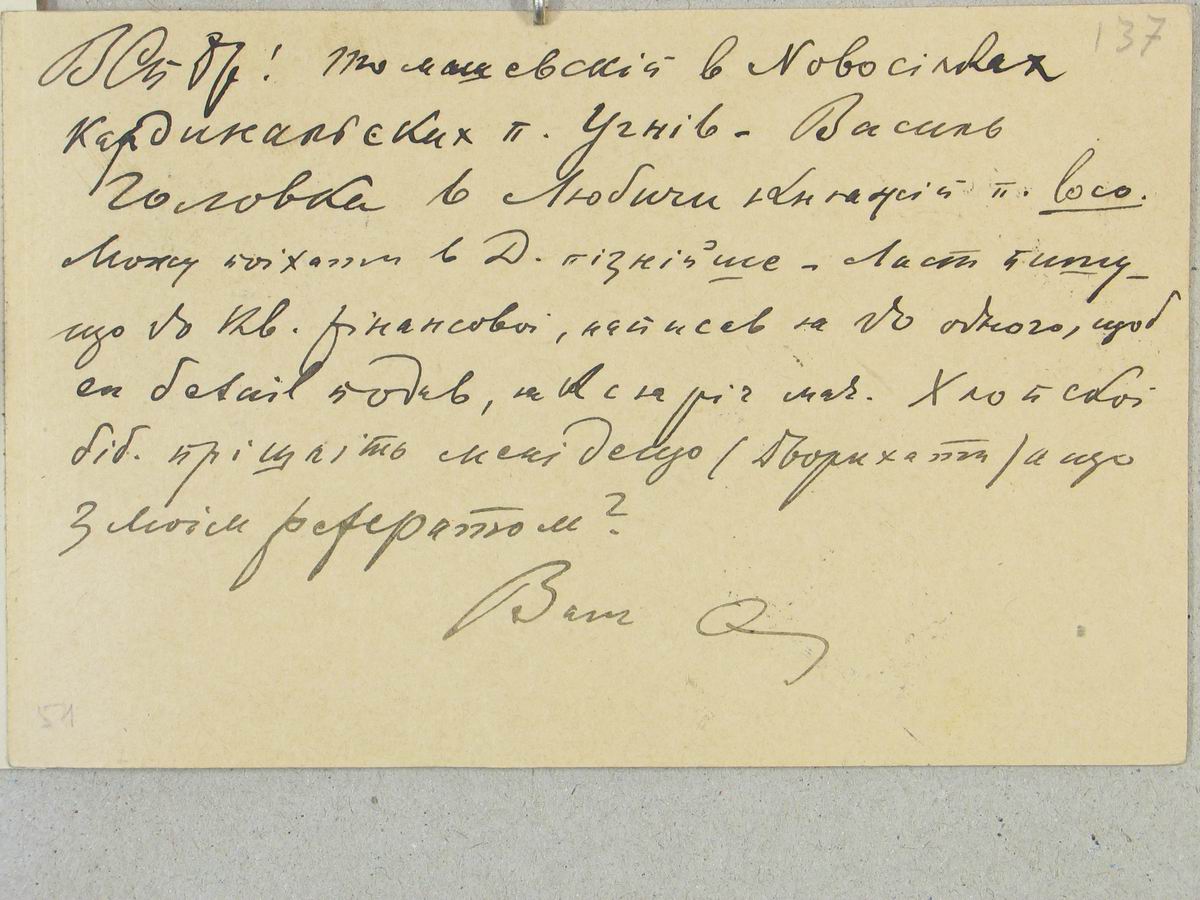 137
ВСп Др! Томашевскій в Новосілках
Кардинальских п. Угнів - Василь
Головка в Любичи Княжій п. loco.
Можу поїхати в Д. пізнійше - Лист пишу -
що до Кв. фінансовоі, написав на до одного, щоб
en detail подав, на К с на річ має. Хлопскоі
біб. прішліть мені дещо (Дворихати) а що
з моім рефератом?
Ваш
51